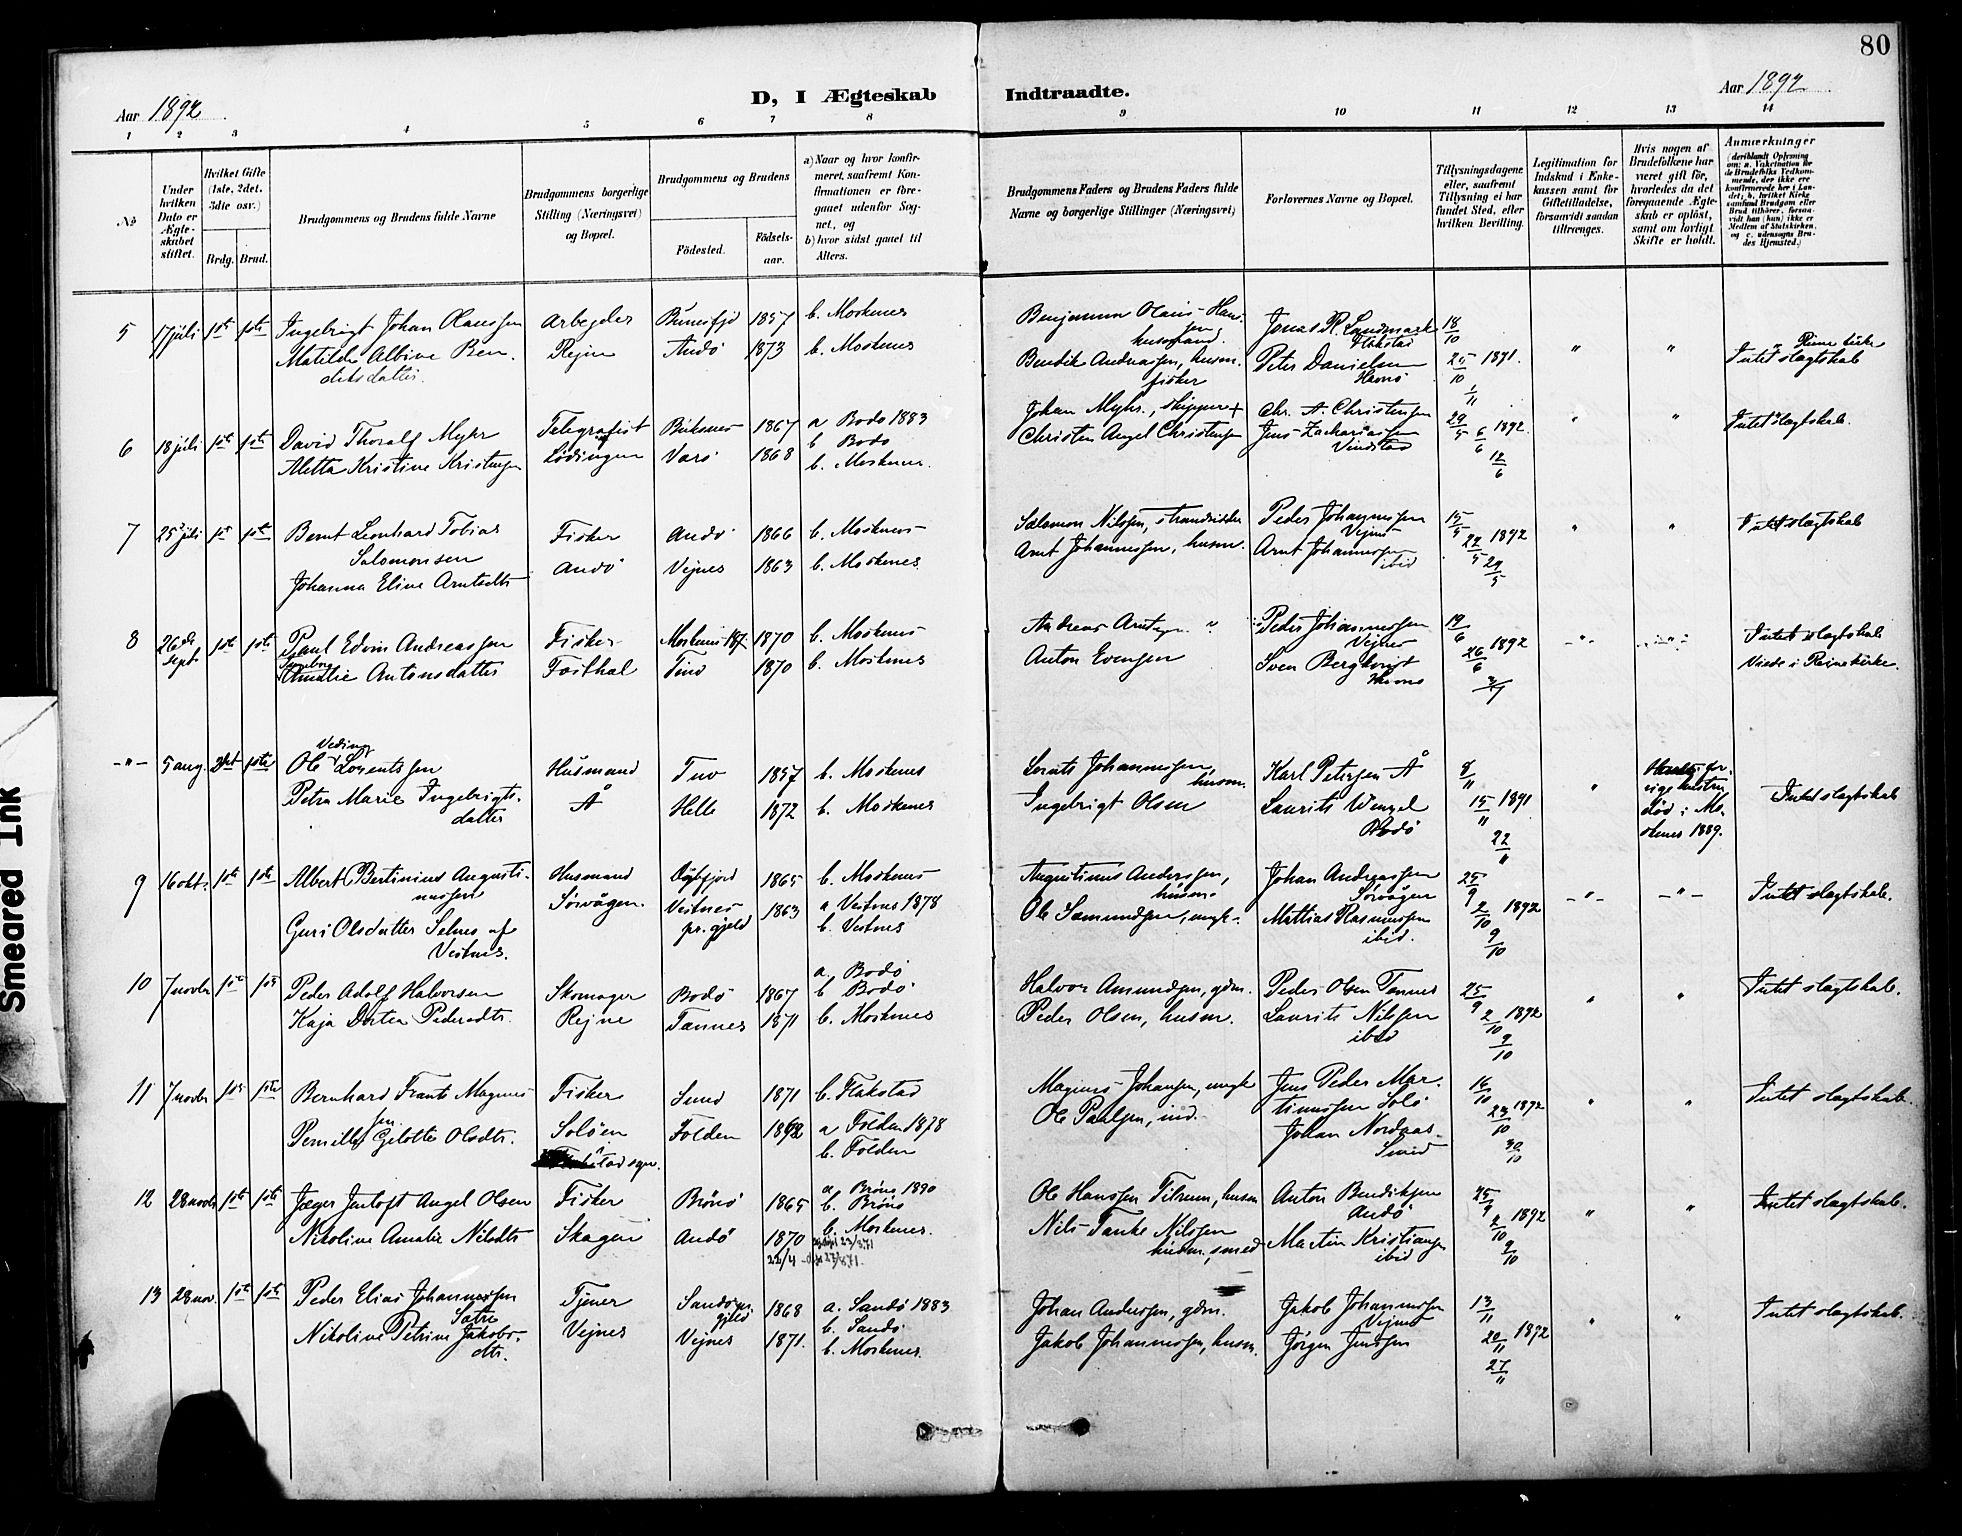 80
Aar 1892
D, I Ægteskab Indtraadte.
Aar 1892
1 2 3 4 5 6 7 8 9 10 11 12 13 14
No
Under hvilken Dato er Ægteskabet stiftet.
Hvilket Gifte (1ste, 2det, 3die osv.)
Brdg. Brud.
Brudgommens og Brudens fulde Navne
Brudgommens borgerlige Stilling (Næringsvei) og Bopæl.
Brudgommens og Brudens
Födested.
Födselsaar.
a) Naar og hvor konfirmeret, saafremt Konfirmationen er foregaaet udenfor Sognet, og
b) hvor sidst gaaet til Alters.
Brudgommens Faders og Brudens Faders fulde Navne og borgerlige Stillinger (Næringsvei)
Forlovernes Navne og Bopæl.
Tillysningsdagene eller, saafremt Tillysning ei har fundet Sted, efter hvilken Bevilling.
Legitimation for Indskud i Enkekassen samt for Giftetilladelse, forsaavidt saadan tiltrænges.
Hvis nogen af Brudefolkene har været gift för, hvorledes da det foregaaende Ægteskab er oplöst, samt om lovligt Skifte er holdt.
Anmærkninger
5 17 juli 1ste 1ste Ingebrigt Johan Olaussen Arbejder Bunesfjd 1857 b. Moskenes Benjamin Olaus Hansen, husmand. Jonas R. Landmark Flakstad 18/10
Matilde Albine Bendiksdatter. Rejne Andö 1873 b. Moskenes Bendik Andreassen, husm. fisker Peter Danielsen Havnö 25/10 1891. 1/11 " " Reine kirke Intet slægtskab
6 18 juli 1ste 1ste David Thoralf Myhr Telegrafist Buksnes 1867 a Bodö 1883 b Bodö Johan Myhr, skipper + Chr. A. Christensen 29/5
Aletta Kristine Kristensen Lödingen Værö 1868 b. Moskenes. Christen Angel Christensen Jens Zachariassen Vindstad 6/6 1892 12/6 " " Intet slægtskab.
7 25 juli 1ste 1ste Bernt Leonhard Tobias Salomonsen Fisker Andö 1866 b. Moskenes Salomon Nilssen, strandsidder Peder Johannessen Vejnes 15/5
Johanna Eline Arntsdtr Andö Vejnes 1863 b. Moskenes. Arnt Johannessen, husm. Arnt Johannessen ibid 22/5 1892 29/5 " " Intet slægtskab
8 26de Sept 1ste 1ste Paul Edvin Andreassen Fisker Moskenes 1870 b. Moskenes Andreas Arntsen " Peder Johannessen Vejnes 19/6
Amalie Antonsdatter Forsthal Tind 1870 b. Moskenes Anton Evensen Sven Berghmst Havnö 26/6 1892 3/7 -"- -"- Intet slægtskab
Viede i Reine kirke.
-"- 5 aug. 2det 1ste Ole Veding Lorentssen Husmand Tuv 1857 b. Moskenes Lorents Johannessen, husm. Karl Petersen Å 8/11
Petra Marie Ingebrigtsdatter Å Helle 1872 b. Moskenes Ingebrigt Olsen Laurits Wenzel 15/11 1891 22/11 " forrige hustru död i Moskenes 1889. Intet slægtskab
9 16 okt. 1ste 1ste Albert Bertinius Augustinussen Husmand 1865 b. Moskenes Augustinus Anderssen, husm. Johan Andreassen Sörvågen 25/9
Guri Olsdatter Selnes af Vestnes. Sörvågen. Vestnes pr.gjeld 1863 a Vestnes 1878 b. Vestnes Ole Samundsen, ungk. Mattias Rasmussen ibid. 2/10 1892 9/10 -"- -"- Intet slægtskab.
10 7 novbr 1ste 1ste Peder Adolf Halvorsen Skomager Bodö 1867 a. Bodö b Bodö Halvor Amundsen, gdm. Peder Olsen Tennes 25/9
Kaja Dortea Pedersdtr. Rejne Tennes 1871 b. Moskenes Peder Olsen, husm. Laurits Nilssen ibid 2/10 1892 9/10 " " Intet slægtskab.
11 7 novbr 1ste 1ste Bernhard Frants Magnussen Fisker Sund 1871 b. Flakstad Magnus Johansen, ungk Jens Peder Martinussen Solö 16/10
Pernille Gelotte Olsdtr. Solöen Folden a Folden 1878 b. Folden Ole Paalsen, ind. Johan Nordaas Sund 23/10 1892 30/10 " " Intet slægtskab.
12 28 novbr 1ste 1ste Jæger Jentoft Angel Olsen Fisker Brönö 1865 a. Brönö 1890 b. Brönö Ole Hanssen Tilrum, husm Anton Bendiksen Andö 25/9
Nikoline Amalie Nilsdtr Skagen Andö 1870 b. Moskenes. Nils Tanke Nilssen husm, smed Martin Kristiansen ibid 2/10 1892 9/10 " " Intet slægtskab.
22/4
13 28 nov. 1ste 1ste Peder Elias Johannessen Sætre Tjener Sandö pr. gjeld 1868 a. Sandö 1883 b. Sandö Johan Anderssen, gdm. Jakob Johannessen Vejnes 13/11
Nikoline Petrine Jakobsdtr. Vejnes Vejnes 1871. b. Moskenes. Jakob Johannessen, husm. Jörgen Jenssen 20/11 1892 27/11 " " Intet slægtskab.
Smeared Ink